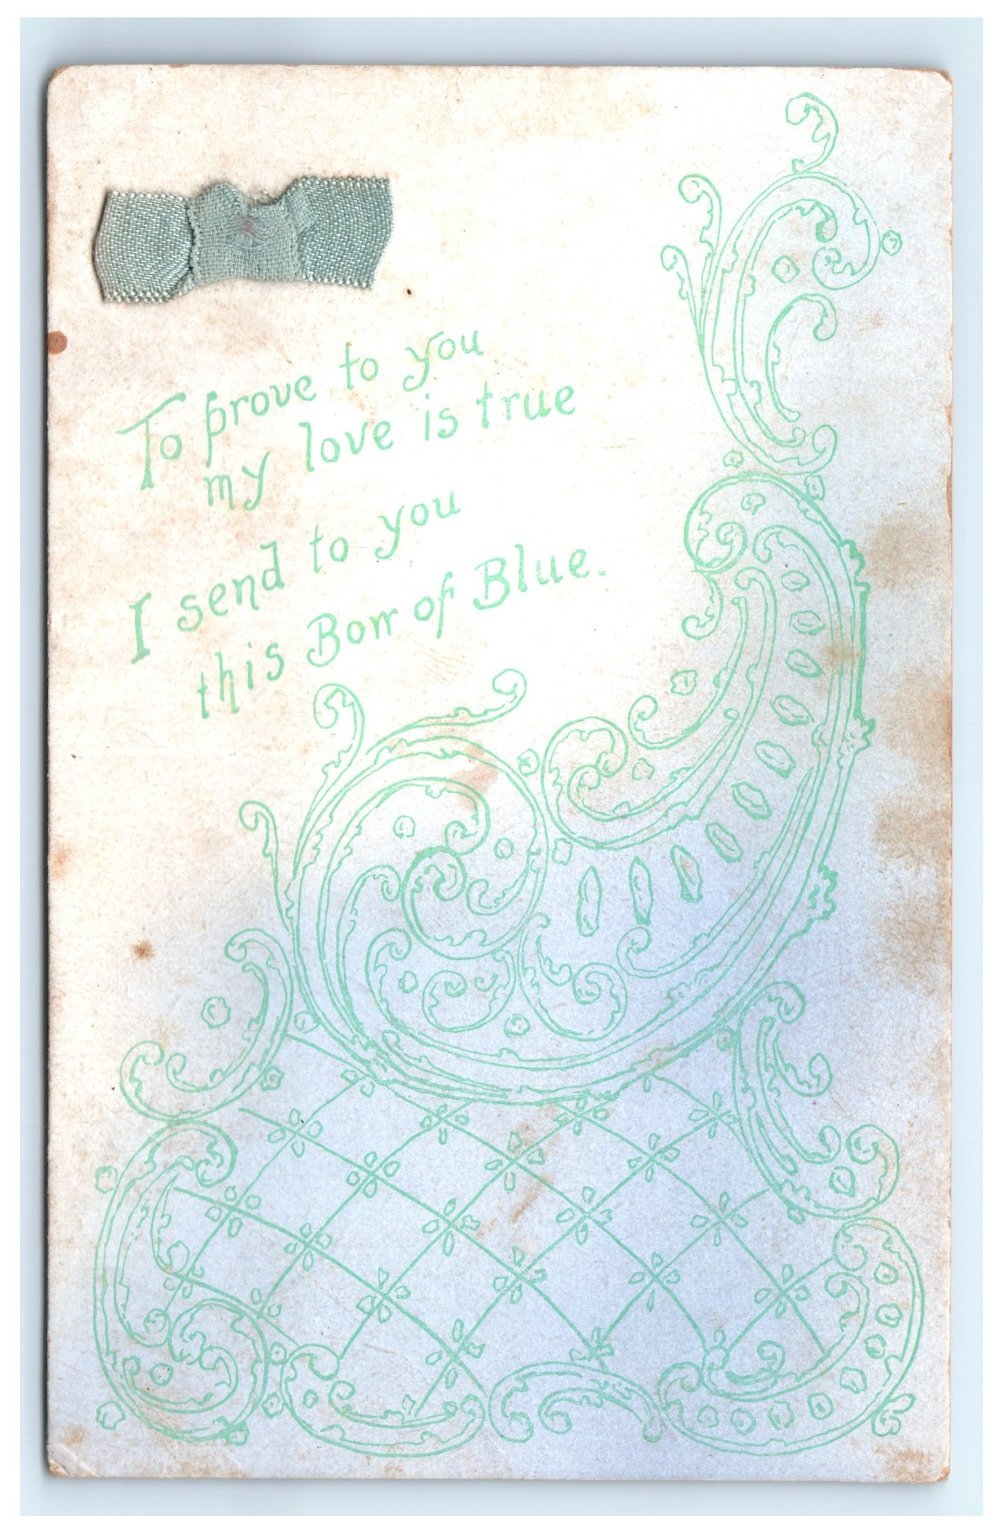 To prove to you
my love is true
I send to you
this Bow of Blue.